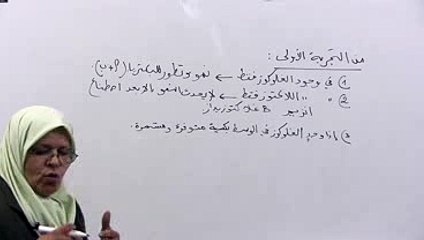 من التجربة الأولى:
① في وجود الغلوكوز فقط ← نمو وتطور البكتريا
② " اللاكتوز فقط ← لا يحدث النمو إلا بعد اصطناع
انزيم B غلاكتوزيداز
③ إذا وجد الغلوكوز في الوسط بكمية متوفرة ومستمرة.